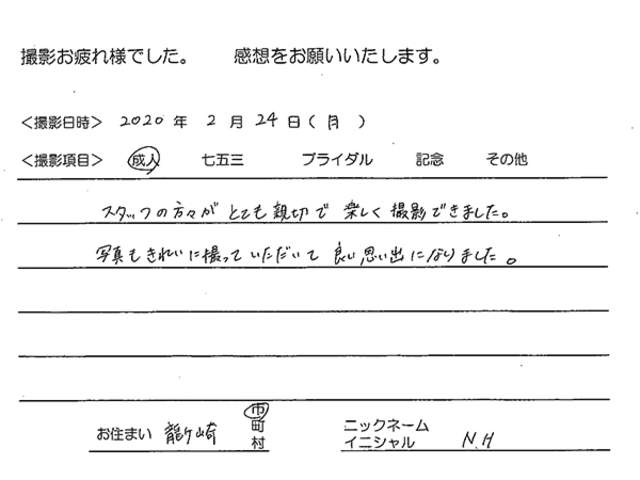 撮影お疲れ様でした。 感想をお願いいたします。
<撮影日時> 2020 年 2 月 24 日(月)
<撮影項目> 成人 七五三 ブライダル 記念 その他
スタッフの方々がとても親切で楽しく撮影できました。
写真もきれいに撮っていただいて良い思い出になりました。
お住まい 龍ヶ崎 市町村 ニックネーム イニシャル N.H